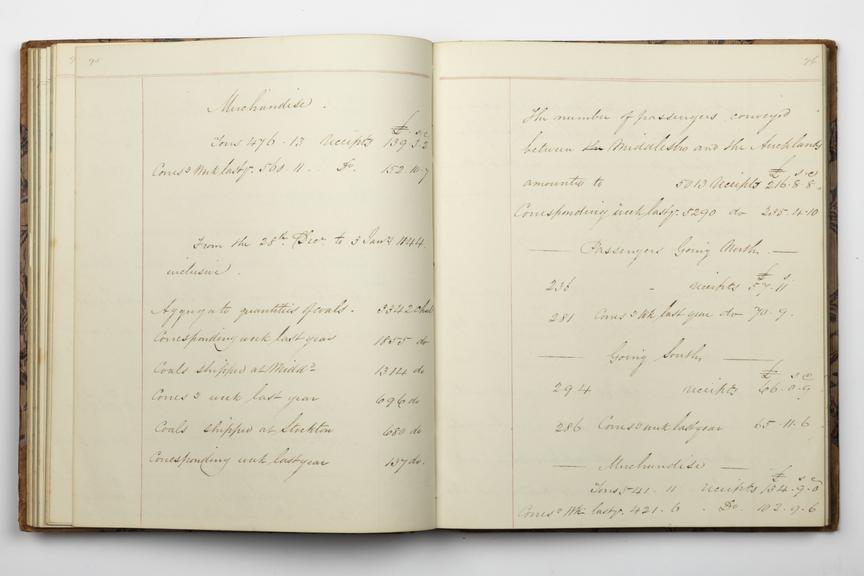 95
Merchandise.
£ s d
Tons 476.13 receipts 139.3.2
Corres.g Wk last yr. 560.11. Do. 152.10.7
From the 28th Decr to 3 Jany 1844
inclusive.
Aggregate quantities of coals. 3342 chal
Corresponding week last year 1855 do
Coals shipped at Middo 1314 do
Corres.g week last year 696 do
Coals shipped at Stockton 680 do
Corresponding week last year 137 do.
96
The number of passengers conveyd
between the Middlesbro and the Aucklands
£ s d
amounts to 5013 receipts 216.8.8.
Corresponding week last yr. 5290 do 235.4.10
Passengers Going North.
£ s
236 " receipts 57.11
281 Corres.g Wk last year do 70.9.
Going South
£ s d
294 receipts 66.0.9
286 Corres.g week last year 65.11.6
Merchandise
£ s d
Tons 541.11 receipts 134.9.0
Corres.g Wk last yr. 421.6. Do. 102.9.6